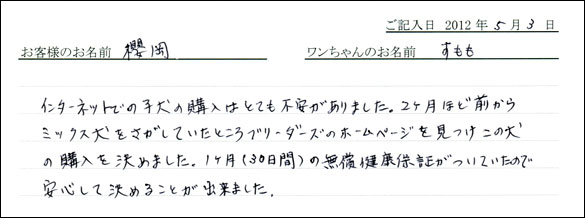 ご記入日 2012年5月3日
お客様のお名前 櫻岡 ワンちゃんのお名前 すもも
インターネットでの子犬の購入はとても不安がありました。2ヶ月ほど前から
ミックス犬をさがしていたところブリーダーズのホームページを見つけこの犬
の購入を決めました。1ヶ月(30日間)の無償健康保証がついていたので
安心して決めることが出来ました。